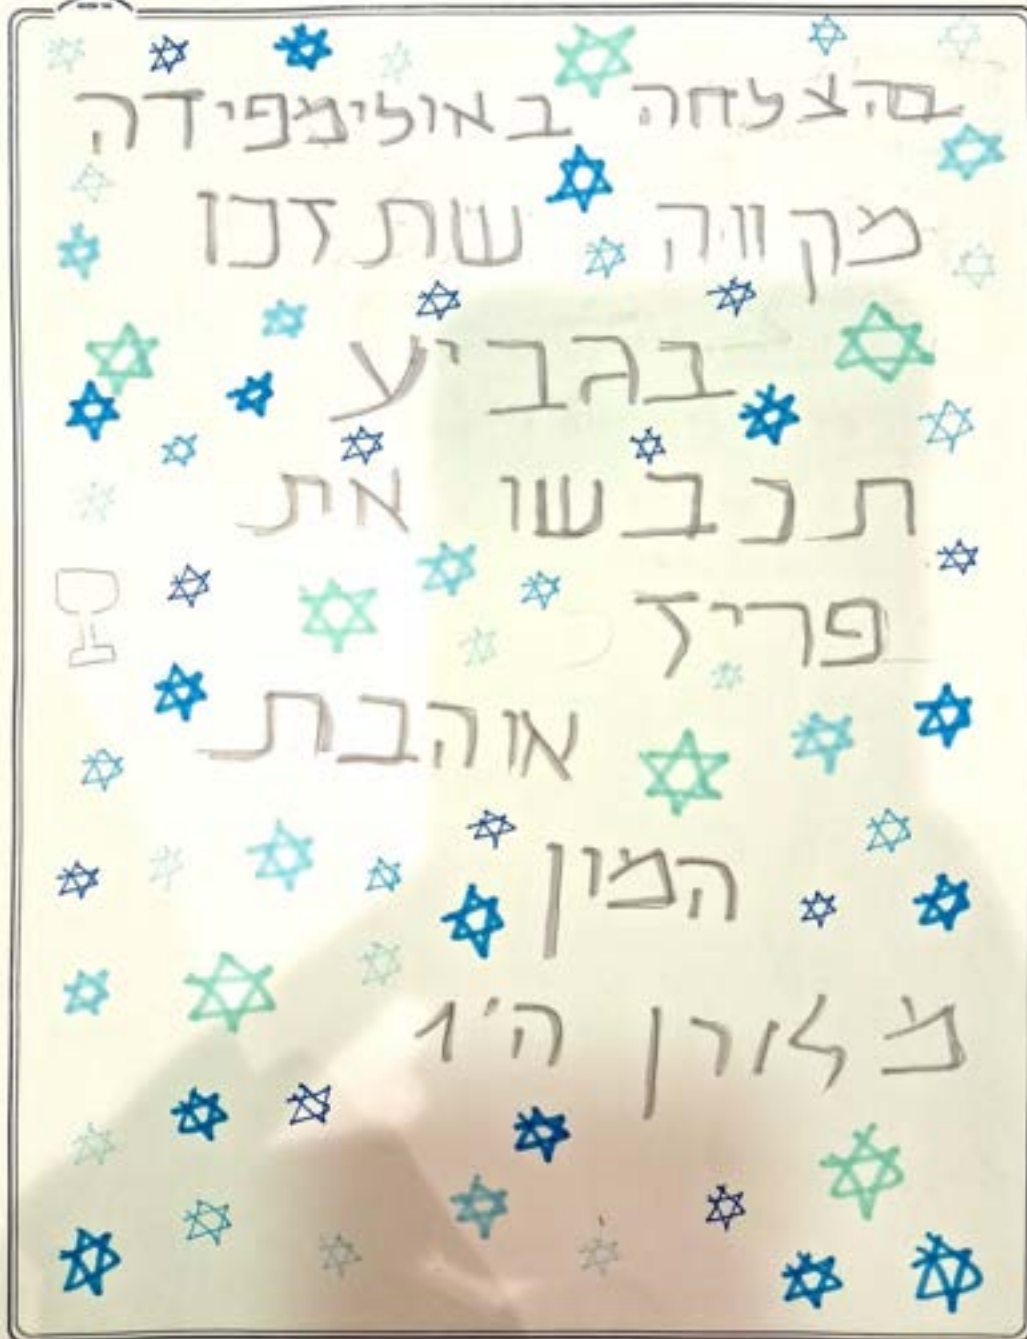 בהצלחה באולימפידה
מקווה שתזכו
בגביע
תכבשו את
פריז
אוהבת
המין
מלורן ה'1